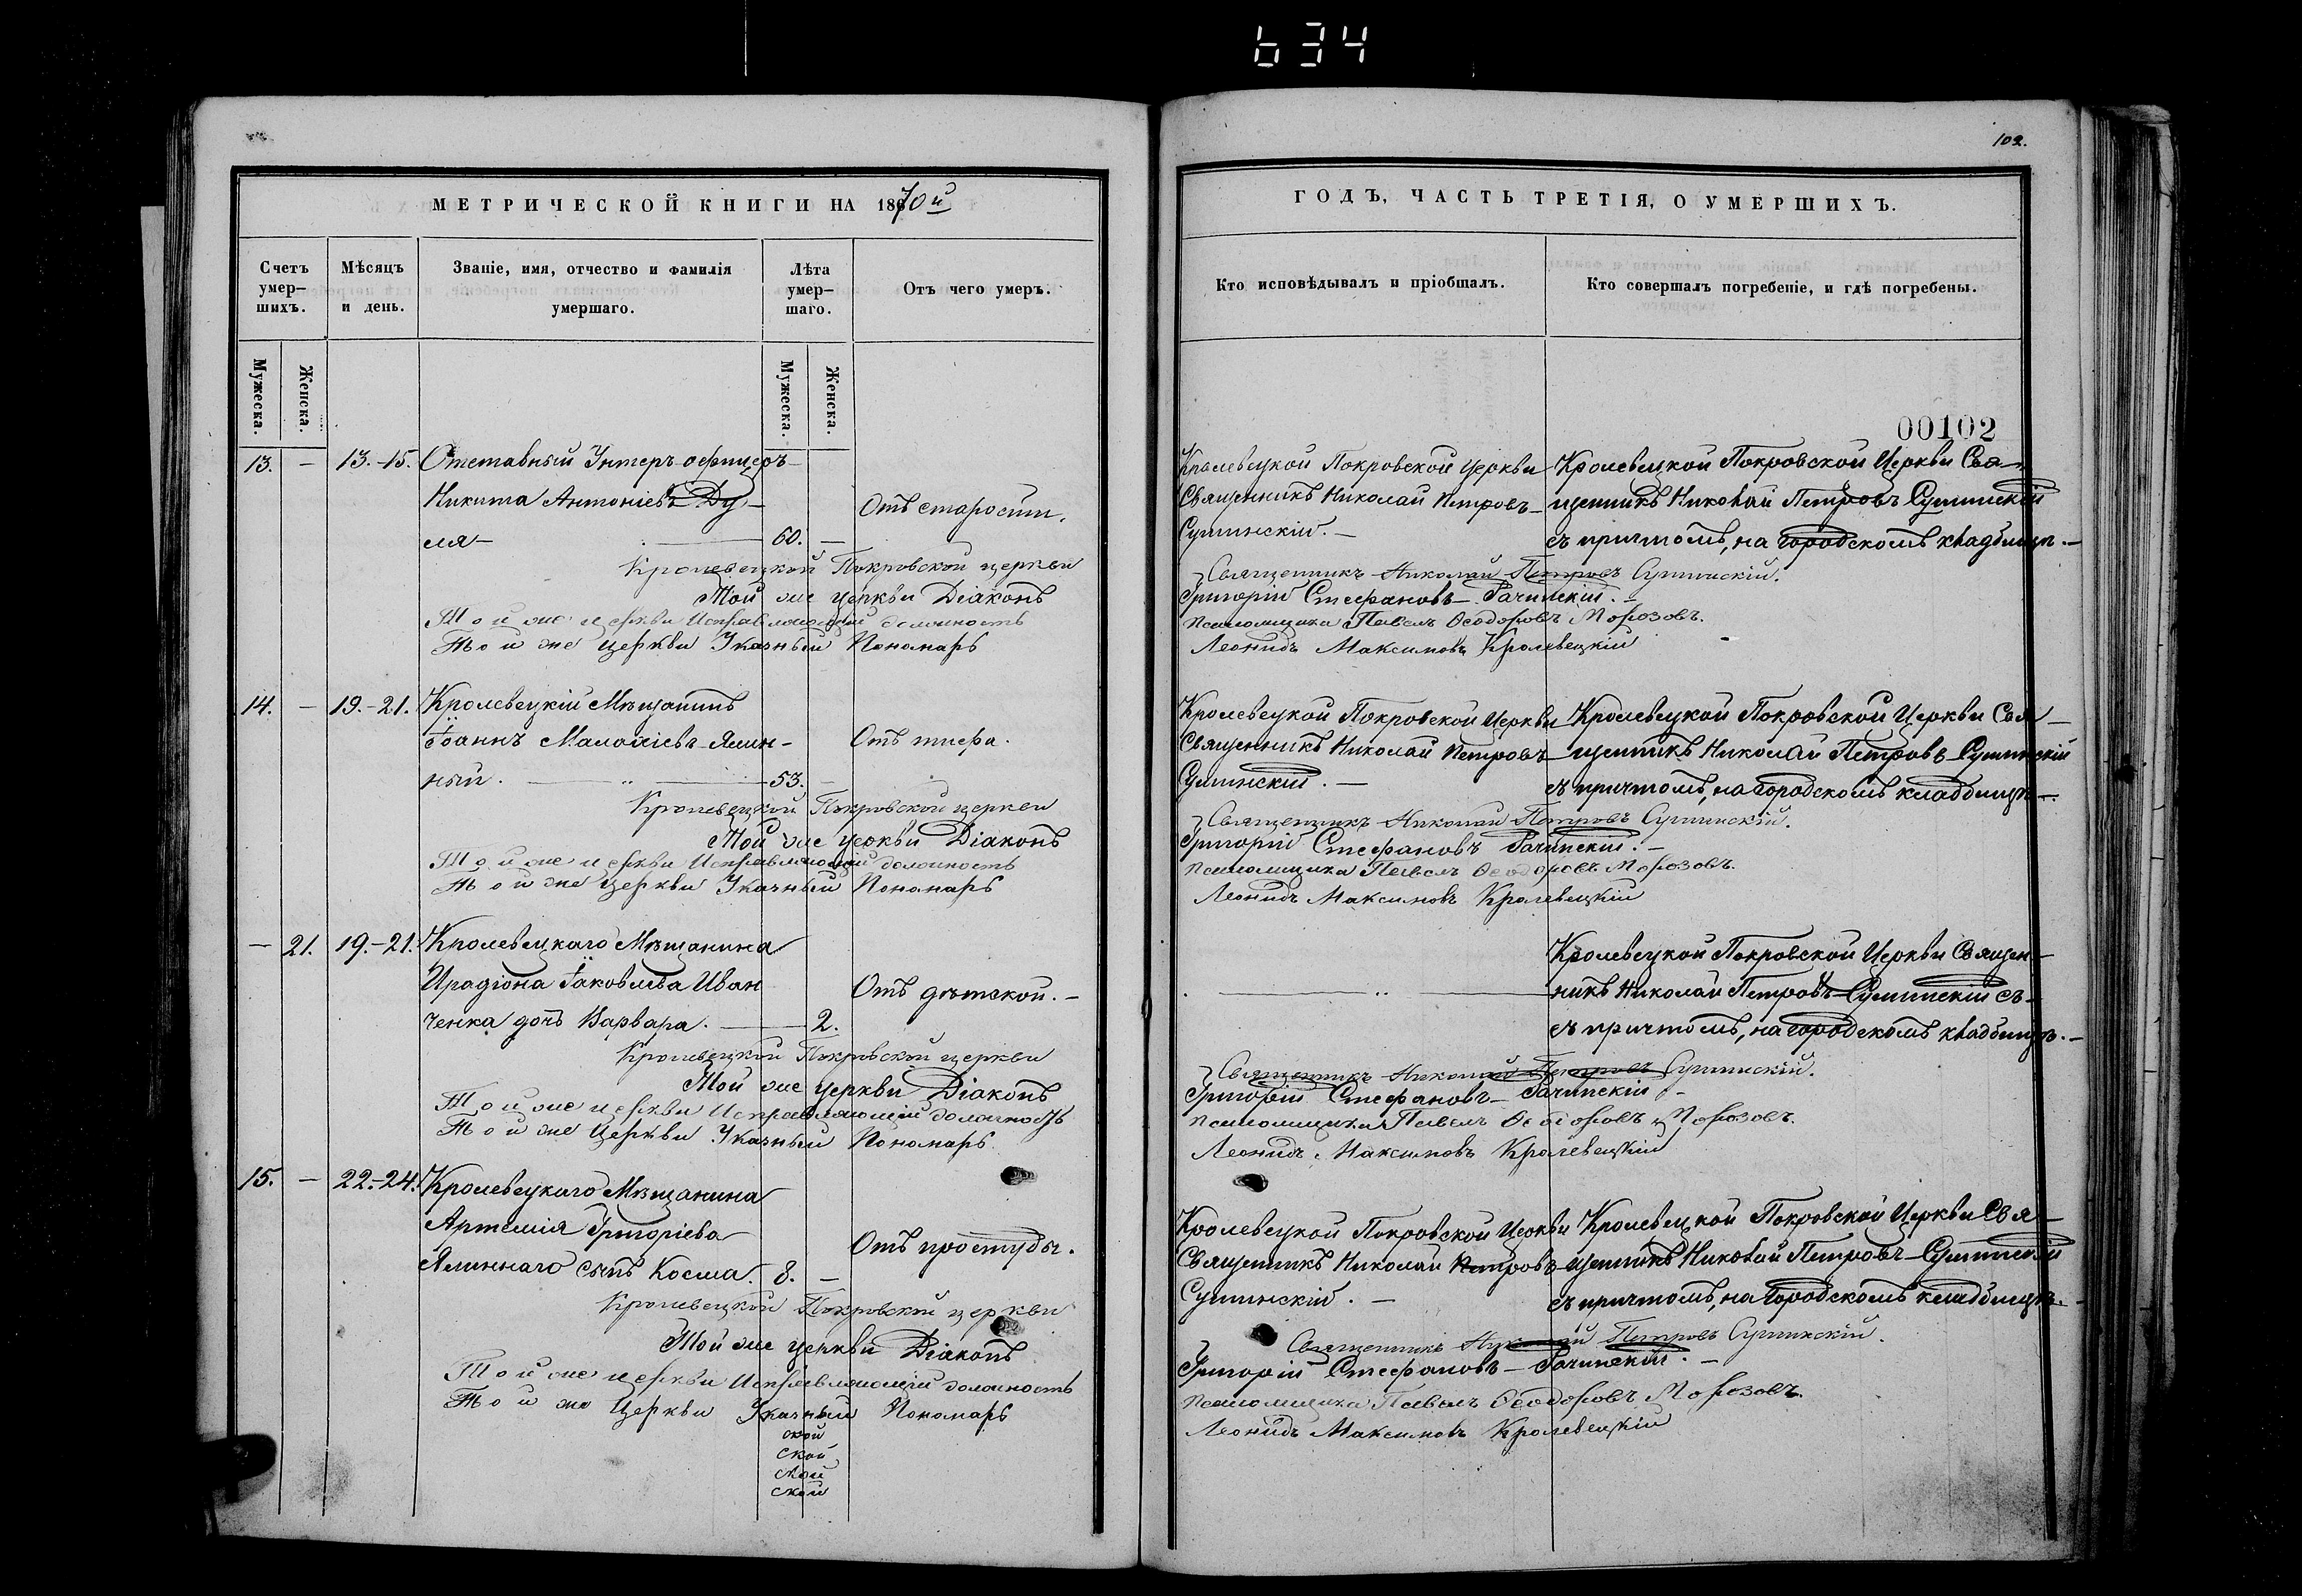 634
102.
МЕТРИЧЕСКОЙ КНИГИ НА 1870й
Счетъ умер-шихъ.
Мѣсяцъ и день.
Званіе, имя, отчество и фамилія умершаго.
Лѣта умер-шаго.
Отъ чего умеръ.
Мужеска.
Женска.
Мужеска.
Женска.
13. — 13.-15. Отставный Унтеръ-офицеръ
Никита Антоніевъ Ду-
ля — 60. —
Отъ старости.
Кролевецкой Покровской церкви
Той же церкви Діаконъ
Той же церкви Исправляющій должность
Той же Церкви Указный Пономарь
14. — 19.-21. Кролевецкій Мѣщанинъ
Іоаннъ Ямин-
ный. — 53. —
Отъ тифа.
Кролевецкой Покровской церкви
Той же церкви Діаконъ
Той же церкви Исправляющій должность
Той же Церкви Указный Пономарь
— 21. 19.-21. Кролевецкаго Мѣщанина
Ирадіона Іаковлева Иван
ченка дочь Варвара. — 2.
Отъ дѣтской. —
Кролевецкой Покровской церкви
Той же церкви Діаконъ
Той же церкви Исправляющій должность
Той же Церкви Указный Пономарь
15. — 22.-24. Кролевецкаго Мѣщанина
Артемія Григоріева
Яминнаго сынъ Косма. 8. —
Отъ простуды.
Кролевецкой Покровской церкви
Той же церкви Діаконъ
Той же церкви Исправляющій должность
Той же Церкви Указный Пономарь
ской
ской
ской
ской
ГОДЪ, ЧАСТЬ ТРЕТІЯ, О УМЕРШИХЪ.
Кто исповѣдывалъ и пріобщалъ.
Кто совершалъ погребеніе, и гдѣ погребены.
00102
Кролевецкой Покровской Церкви
Священникъ Николай Петровъ
Сушинскій. —
Кролевецкой Покровской Церкви Свя-
щенникъ Николай Петровъ Сушинскій
съ причтомъ, на городскомъ кладбищѣ. —
Священникъ Николай Петровъ Сушинскій.
Григорій Стефановъ Рачинскій. —
Псаломщика Павелъ Ѳеодоровъ Морозовъ.
Леонидъ Максимовъ Кролевецкій
Кролевецкой Покровской Церкви
Священникъ Николай Петровъ
Сушинскій. —
Кролевецкой Покровской Церкви Свя-
щенникъ Николай Петровъ Сушинскій
съ причтомъ, на городскомъ кладбищѣ. —
Священникъ Николай Петровъ Сушинскій.
Григорій Стефановъ Рачинскій. —
Псаломщика Павелъ Ѳеодоровъ Морозовъ.
Леонидъ Максимовъ Кролевецкій
Кролевецкой Покровской Церкви Священ-
никъ Николай Петровъ Сушинскій съ
съ причтомъ, на городскомъ кладбищѣ. —
Священникъ Николай Петровъ Сушинскій.
Григорій Стефановъ Рачинскій —
Псаломщика Павелъ Ѳеодоровъ Морозовъ.
Леонидъ Максимовъ Кролевецкій
Кролевецкой Покровской Церкви
Священникъ Николай Петровъ
Сушинскій. —
Кролевецкой Покровской Церкви Свя-
щенникъ Николай Петровъ Сушинскій
съ причтомъ, на городскомъ кладбищѣ.
Священникъ Николай Петровъ Сушинскій.
Григорій Стефановъ Рачинскій. —
Псаломщика Павелъ Ѳеодоровъ Морозовъ.
Леонидъ Максимовъ Кролевецкій